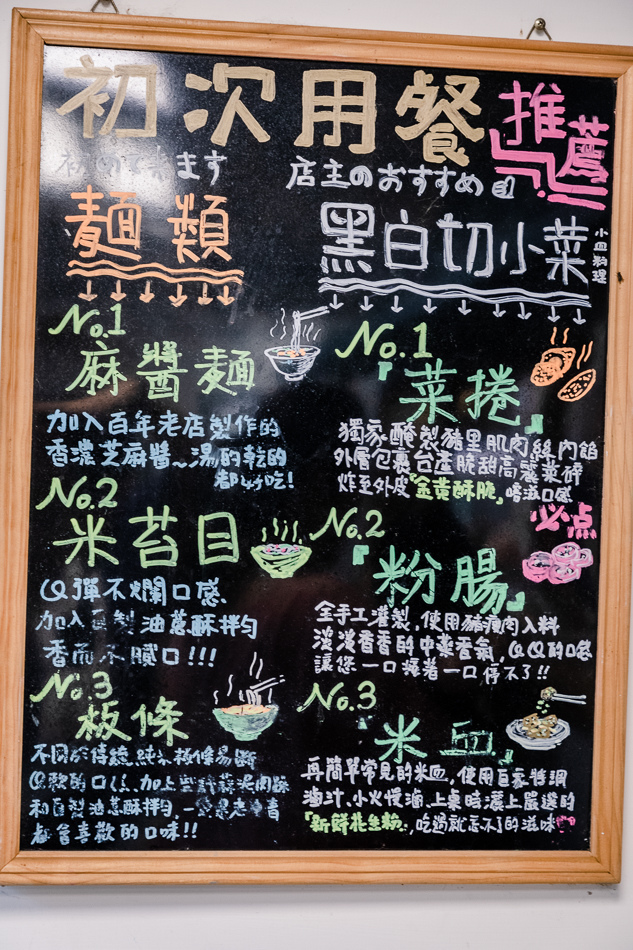 初次用餐
推薦
ます
店主のおすすめ
麵類
黑白切小菜
小皿料理
No.1
麻醬麵
加入百年老店製作的
香濃芝麻醬~湯的乾的
都好吃!
No.2
米苔目
QQ彈不爛口感
加入自製油蔥酥拌勻
香而不膩口!!!
No.3
板條
不同於傳統純米板條易斷
和自製油蔥酥拌勻,
都會喜歡的口味!!
No.1
『菜捲』
獨家醃製豬里肌肉絲內餡
外層包裹台產脆甜高麗菜碎
炸至外皮『金黃酥脆』
必点
No.2
『粉腸』
全手工灌製,使用豬瘦肉入料
淡淡香香的中藥香氣,QQ的口感
讓您一口接著一口停不了!!
No.3
『米血』
再簡單常見的米血,使用百家特調
滷汁、小火慢滷、上桌時灑上嚴選的
『新鮮花生粉』,吃過就忘不了的滋味